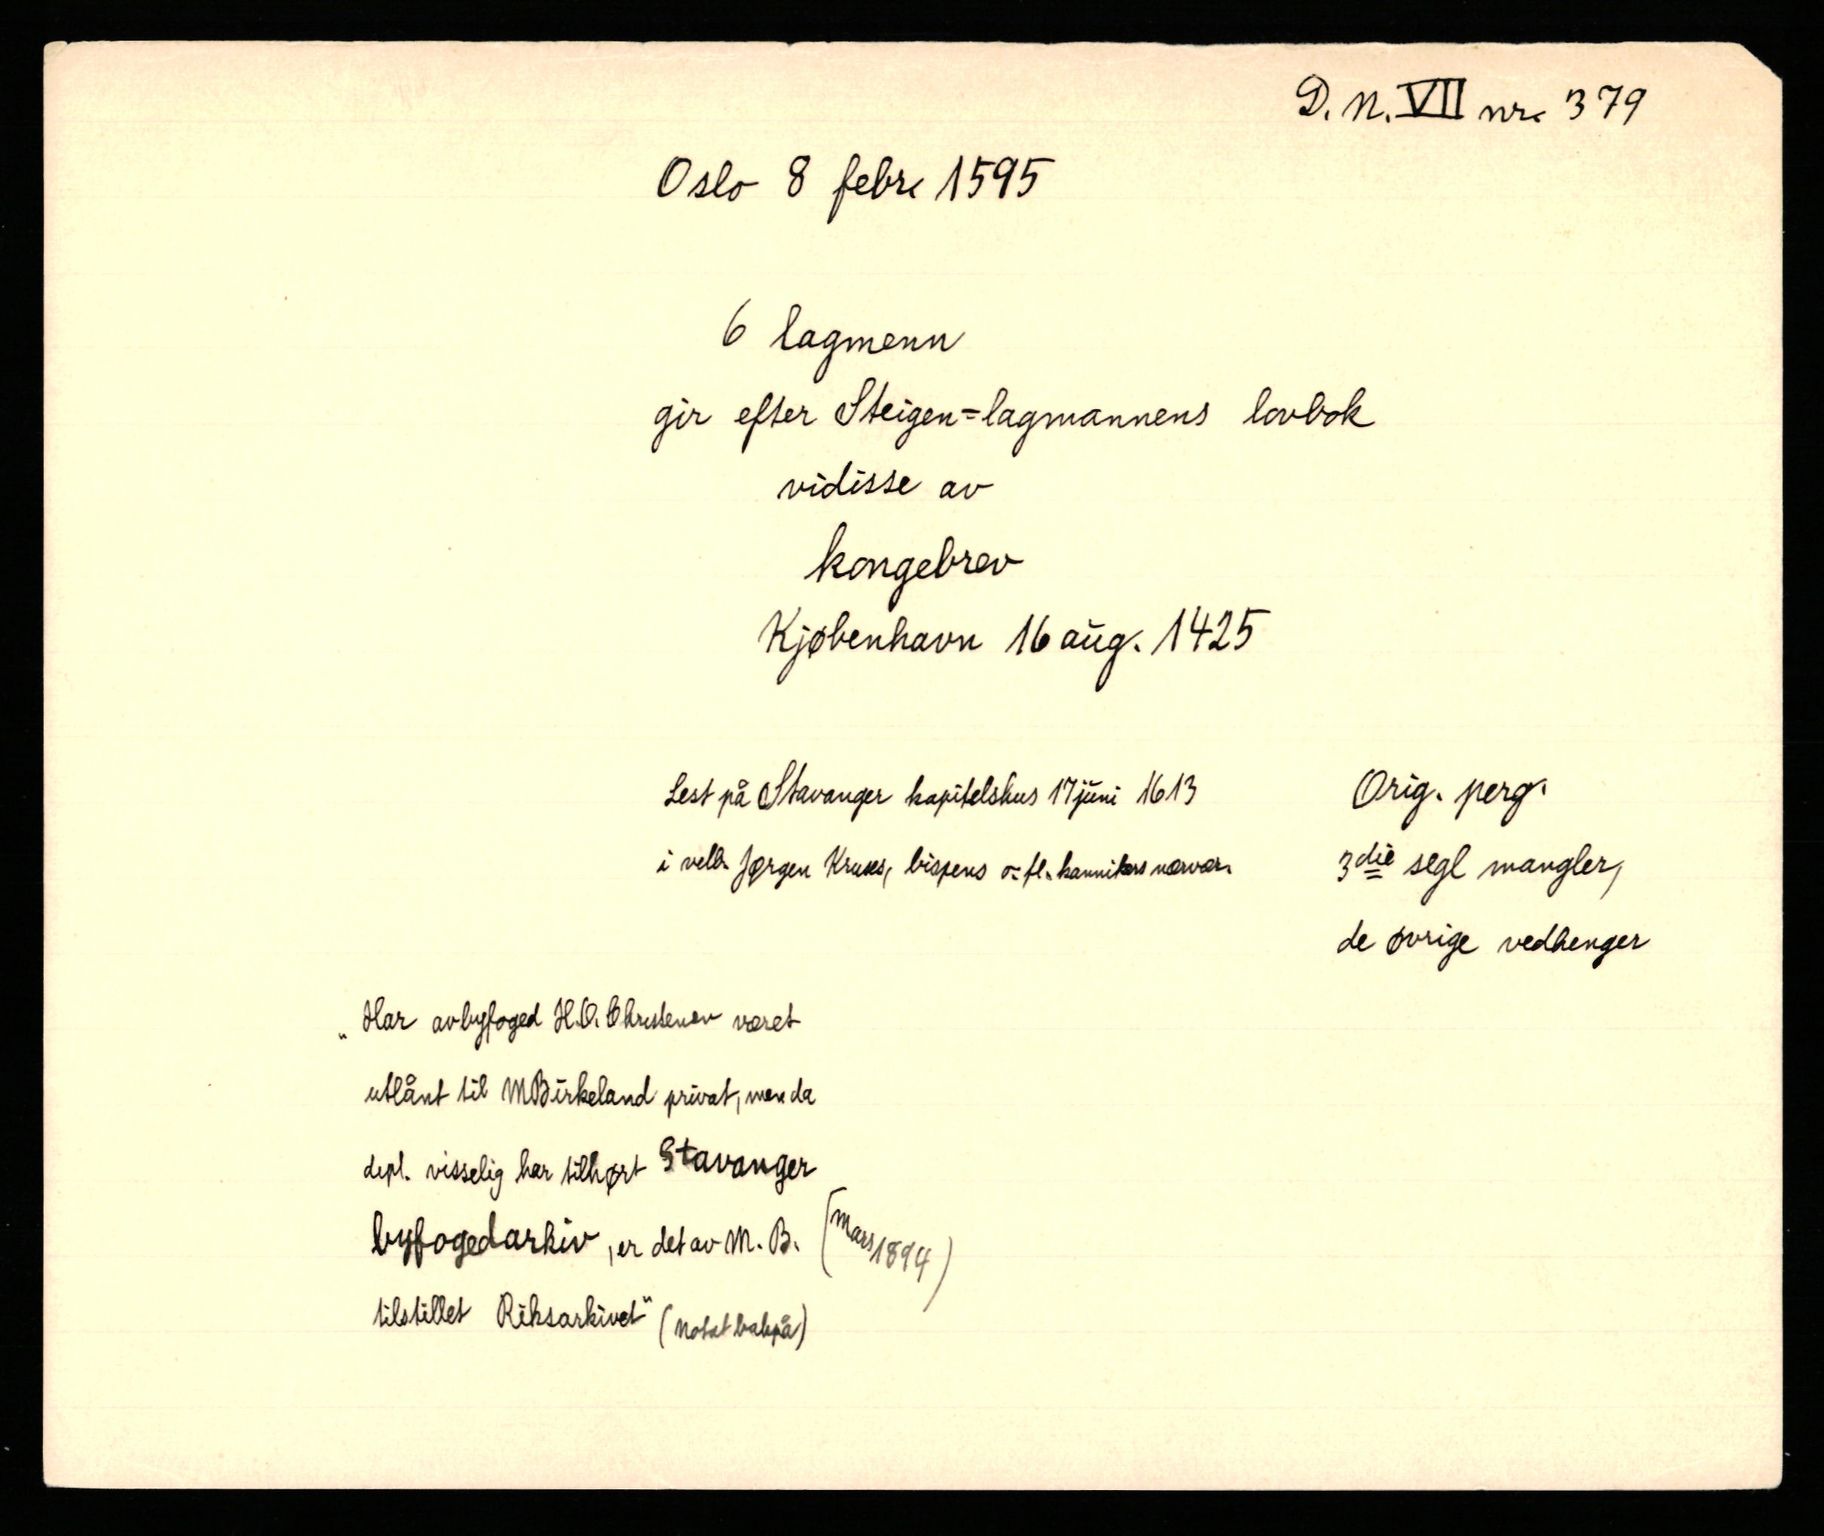 D. N. VII nr. 379
Oslo 8 febr. 1595
6 lagmenn
gir efter Steigen=lagmannens lovbok
vidisse av
kongebrev
Kjøbenhavn 16 aug. 1425
Lest på Stavanger kapitelshus 17 juni 1613
i velb. Jørgen Kruses, bispens o. fl. kannikers nærvær.
Orig. perg.
3die segl mangler,
de øvrige vedhenger
"Har av byfoged H. O. Christensen været
utlånt til M Birkeland privat, men da
dipl. visselig har tilhørt Stavanger
byfogedarkiv, er det av M. B. (mars 1894)
tilstillet Riksarkivet" (notat bakpå)